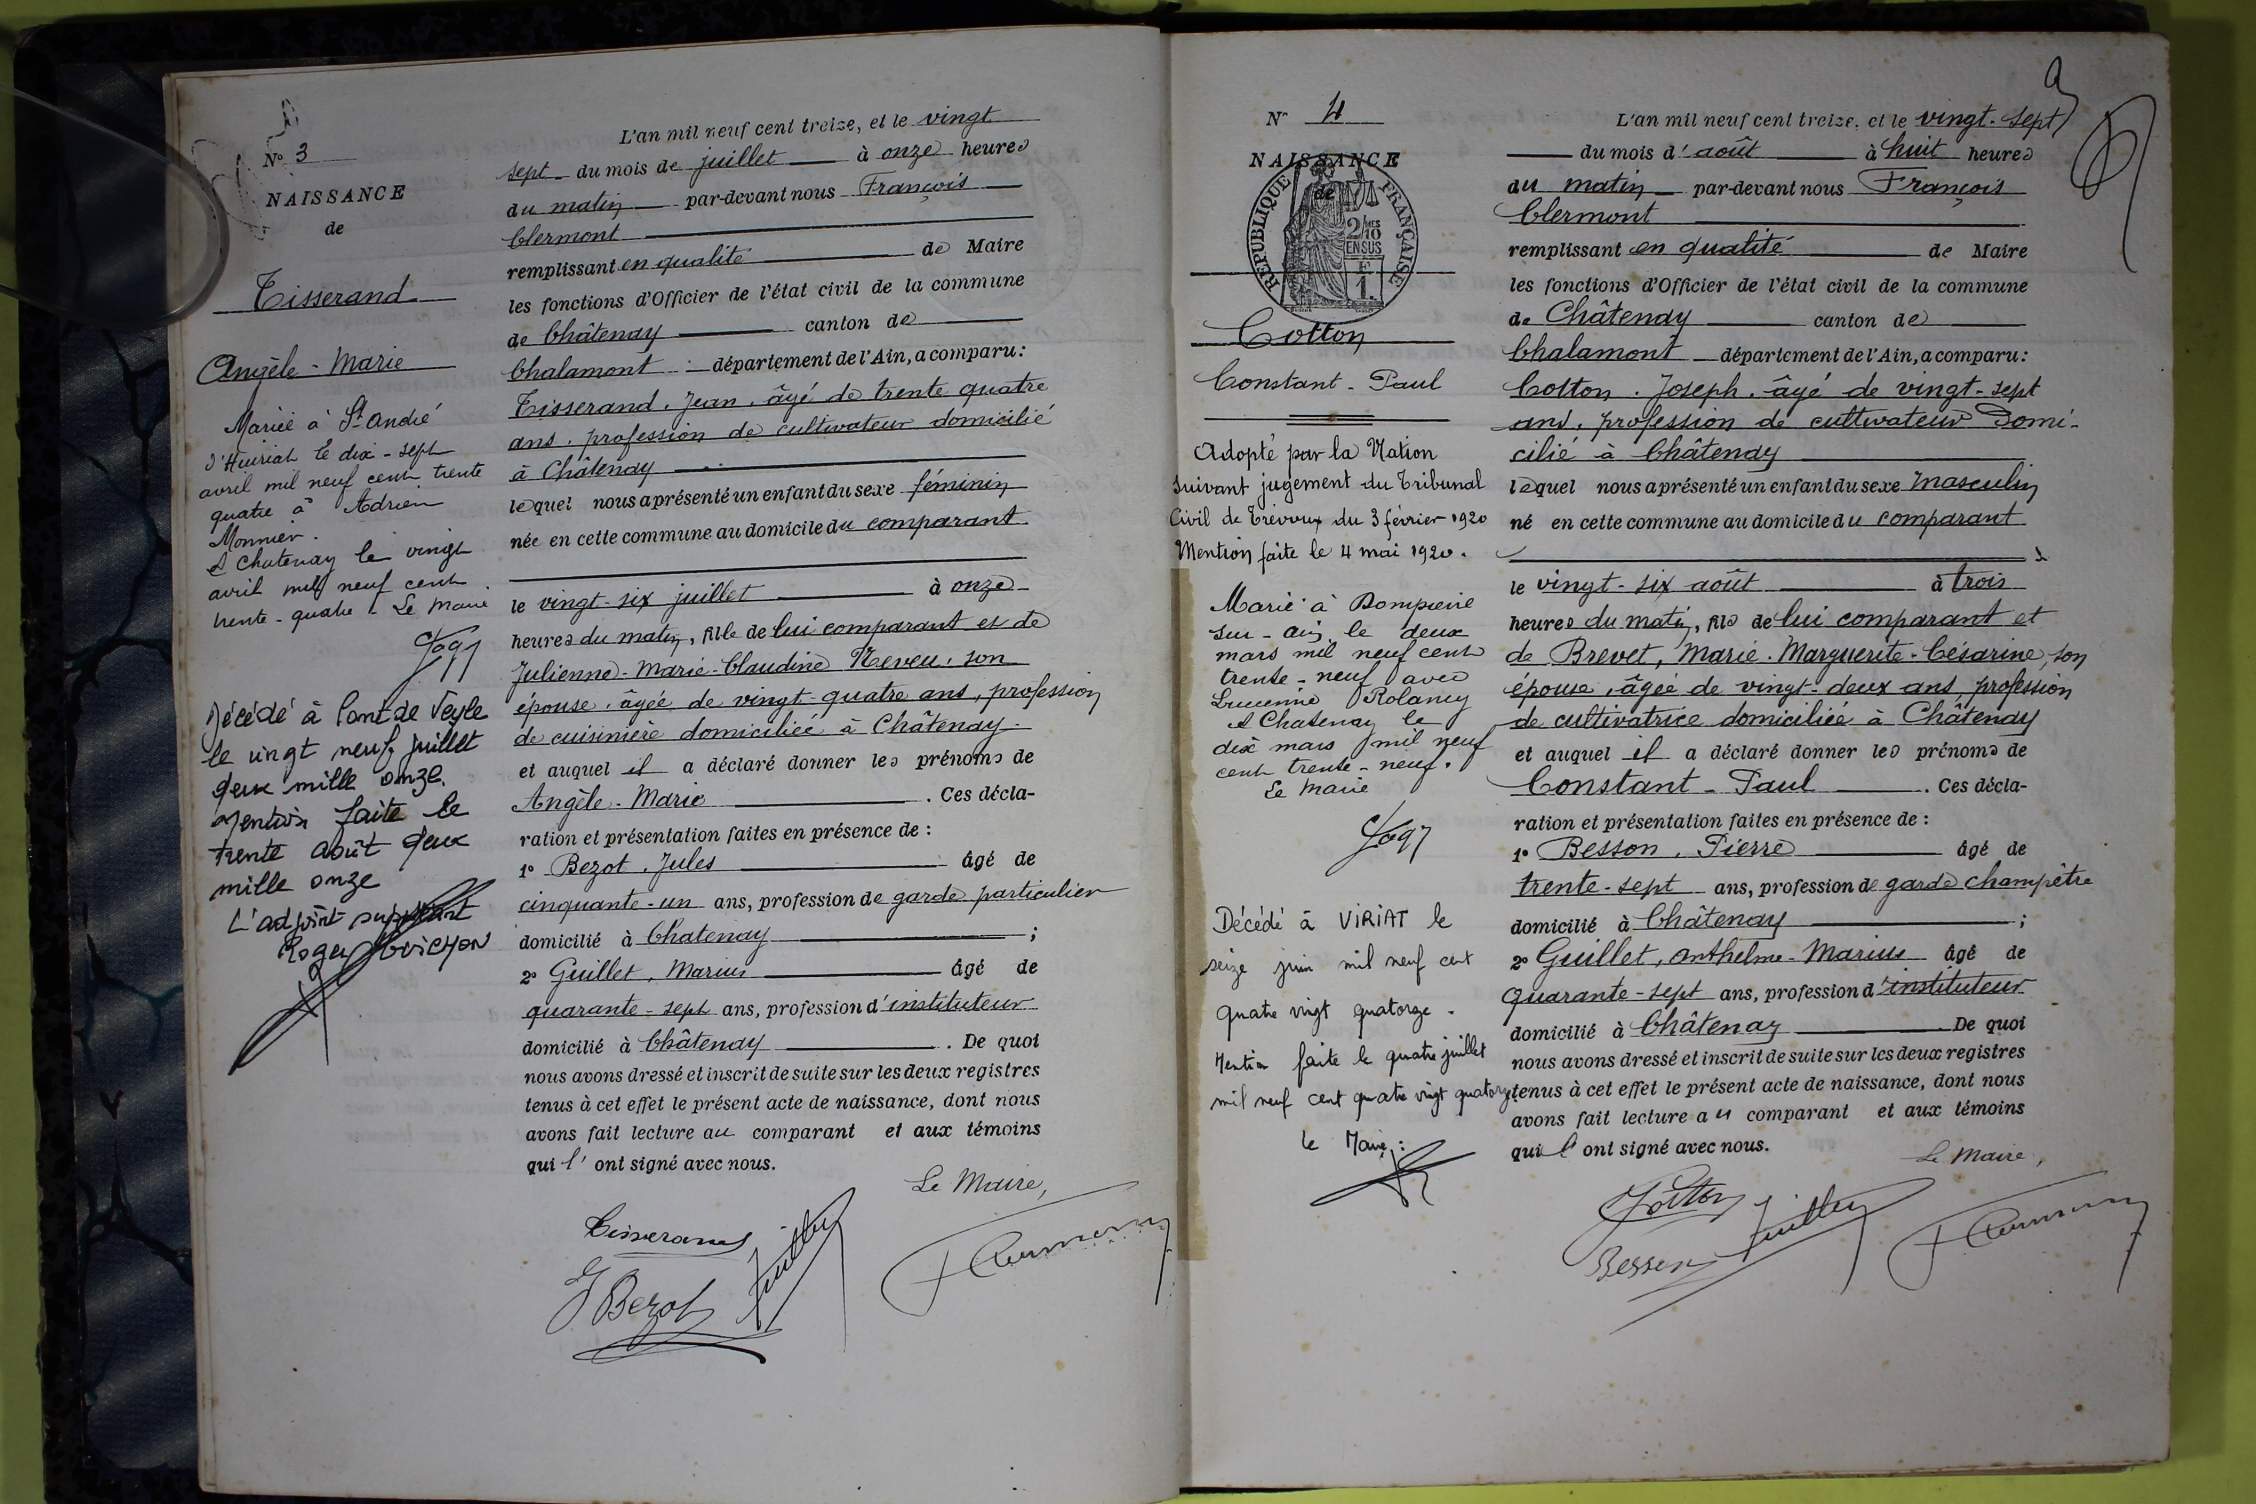 N° 3
NAISSANCE
de
Tisserand
Angèle - Marie
Mariée à St André
d'Huiriat le dix - sept
avril mil neuf cent trente
quatre à Adrien
Monnier.
A Chatenay le vingt
avril mil neuf cent
trente - quatre. Le Maire
Décédé à Pont de Veyle
le vingt neuf juillet
deux mille onze.
Mention faite le
trente août deux
mille onze
L'adjoint suppléant
Roger
L'an mil neuf cent treize, et le vingt
sept du mois de juillet à onze heures
du matin par-devant nous François
Clermont
remplissant en qualité de Maire
les fonctions d'Officier de l'état civil de la commune
de Châtenay canton de
Chalamont département de l'Ain, a comparu:
Tisserand, Jean, âgé de trente quatre
ans, profession de cultivateur domicilié
à Châtenay
lequel nous a présenté un enfant du sexe féminin
née en cette commune au domicile du comparant
le vingt-six juillet à onze
heures du matin, fille de lui comparant et de
Julienne-Marie-Claudine Neveu, son
épouse, âgée de vingt-quatre ans, profession
de cuisinière domiciliée à Châtenay
et auquel il a déclaré donner les prénoms de
Angèle-Marie. Ces décla-
ration et présentation faites en présence de :
1° Bezot, Jules âgé de
cinquante-un ans, profession de garde particulier
domicilié à Chatenay ;
2° Guillet, Marius âgé de
quarante-sept ans, profession d'instituteur
domicilié à Châtenay. De quoi
nous avons dressé et inscrit de suite sur les deux registres
tenus à cet effet le présent acte de naissance, dont nous
avons fait lecture au comparant et aux témoins
qui l'ont signé avec nous.
Le Maire,
Tisserand
J Bezot
Guillet
F Clermont
N° 4
NAISSANCE
de
RÉPUBLIQUE FRANÇAISE
2/10mes
EN SUS
1F.
Cotton
Constant - Paul
Adopté par la Nation
suivant jugement du Tribunal
Civil de Trévoux du 3 février 1920
Mention faite le 4 mai 1920.
Marié à Dompierre
sur-ain le deux
mars mil neuf cent
trente-neuf avec
Lucienne Rolancy
A Chatenay le
dix mars mil neuf
cent trente-neuf.
Le Maire
Décédé à VIRIAT le
seize juin mil neuf cent
quatre vingt quatorze.
Mention faite le quatre juillet
mil neuf cent quatre vingt quatorze.
Le Maire :
L'an mil neuf cent treize, et le vingt-sept
du mois d'août à huit heures
du matin par-devant nous François
Clermont
remplissant en qualité de Maire
les fonctions d'Officier de l'état civil de la commune
de Châtenay canton de
Chalamont département de l'Ain, a comparu:
Cotton, Joseph, âgé de vingt-sept
ans, profession de cultivateur domi-
cilié à Châtenay
lequel nous a présenté un enfant du sexe masculin
né en cette commune au domicile du comparant
le vingt-six août à trois
heures du matin, fils de lui comparant et
de Brevet, Marie-Marguerite-Césarine, son
épouse, âgée de vingt-deux ans, profession
de cultivatrice domiciliée à Châtenay
et auquel il a déclaré donner les prénoms de
Constant-Paul. Ces décla-
ration et présentation faites en présence de :
1° Besson, Pierre âgé de
trente-sept ans, profession de garde champêtre
domicilié à Châtenay ;
2° Guillet, Anthelme-Marius âgé de
quarante-sept ans, profession d'instituteur
domicilié à Châtenay De quoi
nous avons dressé et inscrit de suite sur les deux registres
tenus à cet effet le présent acte de naissance, dont nous
avons fait lecture au comparant et aux témoins
qui l'ont signé avec nous.
Le Maire,
Cotton
Guillet
Besson
F Clermont